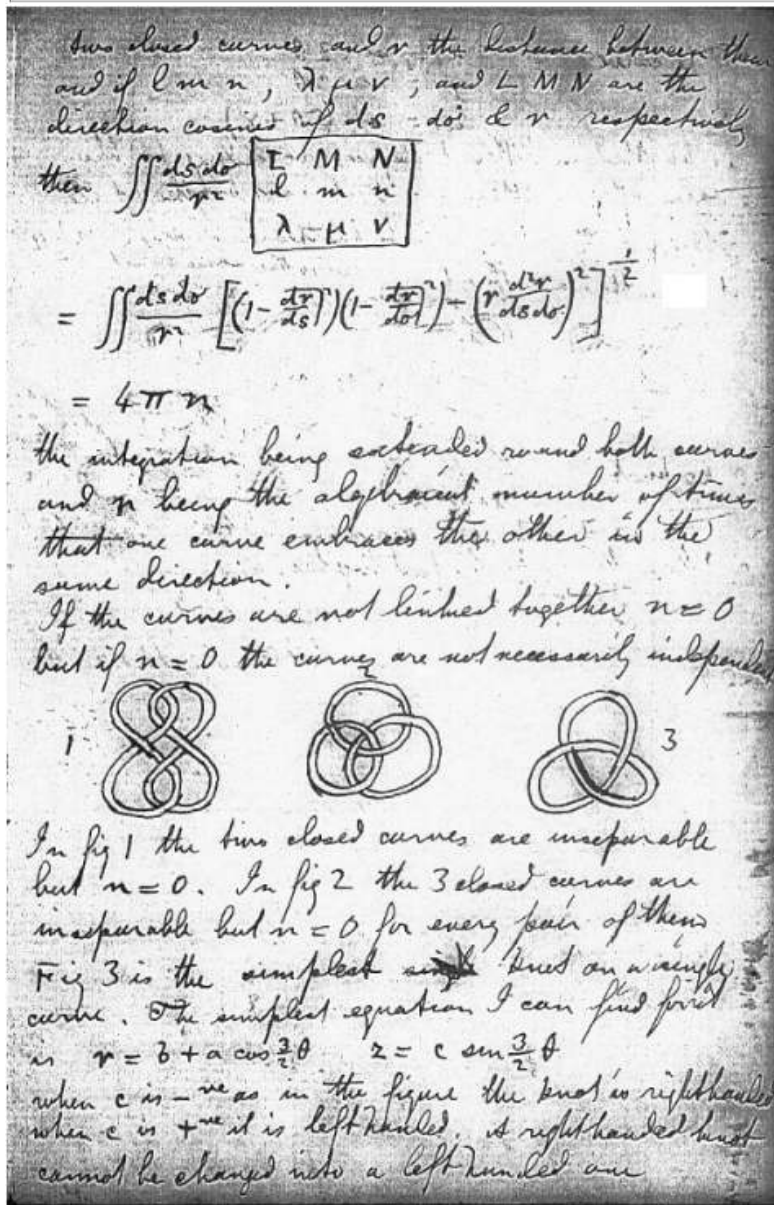 two closed curves and r the distance between them
and if l m n, λ μ ν, and L M N are the
direction cosines of ds dσ & r respectively
then ∬ ds dσ / r² | L M N |
l m n
λ μ ν
= ∬ ds dσ / r² [(1 - (dr/ds)²)(1 - (dr/dσ)²) - (r d²r/ds dσ)²]^½
= 4πn
the integration being extended round both curves
and n being the algebraical number of times
that one curve embraces the other in the
same direction.
If the curves are not linked together n = 0
but if n = 0 the curves are not necessarily independent
1 2 3
In fig 1 the two closed curves are inseparable
but n = 0. In fig 2 the 3 closed curves are
inseparable but n = 0 for every pair of them
Fig 3 is the simplest knot on a single
curve. The simplest equation I can find for it
is r = b + a cos 3/2 θ z = c sin 3/2 θ
when c is -ve as in the figure the knot is right handed
when c is +ve it is left handed. A right handed knot
cannot be changed into a left handed one